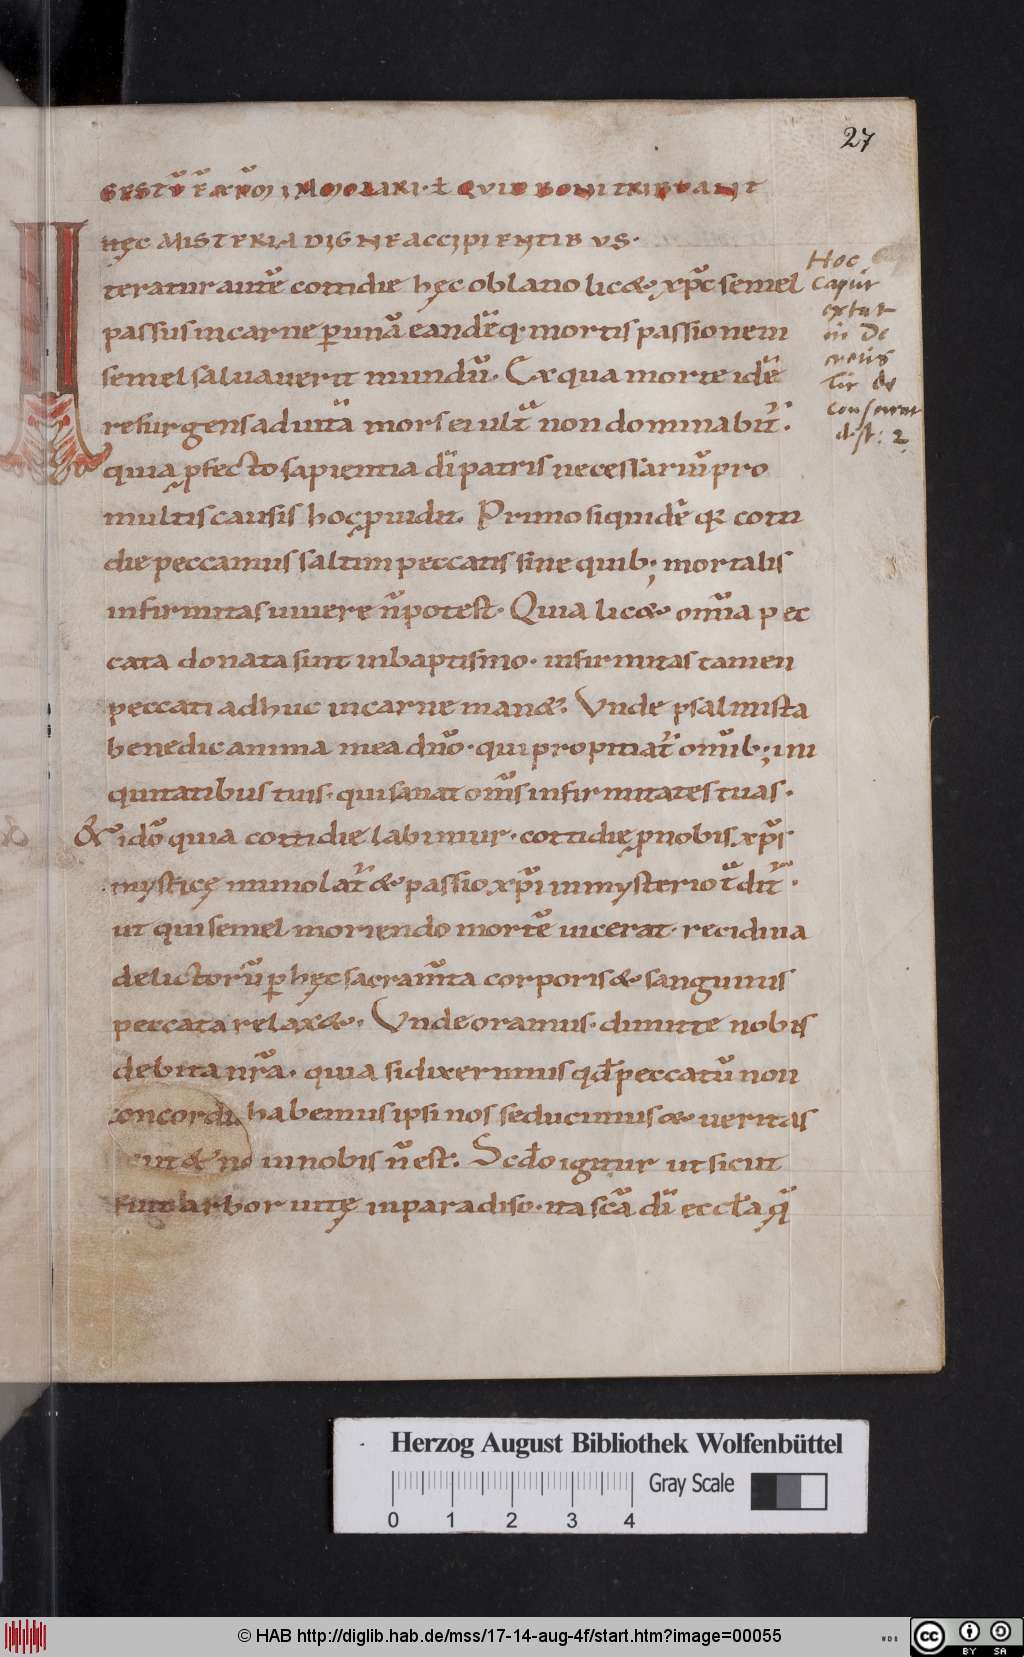 27
GESTŪ RARŪM INMOLARI · Ł QVID BONI TRIBVANT
HĘC MISTERIA DIGNE ACCIPIENTIBVS ·
Iteratur autē cottidie hęc oblatio lic& xp̄c semel
passus in carne p unā eandēq· mortis passionem
semel saluauerit mundū · Ex qua morte idē
resurgens ad uitā mors ei ult̄ non dominabit̄ .
quia pfecto sapientia dī patris necessariū pro
multis causis hoc puidit. Primo siquidē qr cotti
die peccamus saltim peccatis sine quib; mortalis
infirmitas uiuere n̄ potest · Quia lic& om̄ia pec
cata donata sint in baptismo · infirmitas tamen
peccati adhuc in carne man&. Vnde psalmista
benedic anima mea dn̄o · qui propitiat̄ om̄ib; ini
quitatibus tuis · qui sanat om̄s infirmitates tuas ·
& idō quia cottidie labimur · cottidie p nobis xp̄s
mysticę immolat̄ & passio xp̄i in mysterio t̄dit̄ ·
ut qui semel moriendo mortē uicerat · recidiua
delictorū p hęc sacram̄ta corporis & sanguinis
peccata relax&. Vnde oramus · dimitte nobis
debita nr̄a · quia si dixerimus qđ peccatū non
habemus ipsi nos seducimus & ueritas
in nobis n̄ est. Scđo igitur ut sicut
fuit arbor uitę in paradiso · ita sc̄a dī eccła q̄
concordi
Hoc
caput
extat
in De
cretis
Tit de
consecrat
dist: 2
Herzog August Bibliothek Wolfenbüttel
Gray Scale
0 1 2 3 4
© HAB http://diglib.hab.de/mss/17-14-aug-4f/start.htm?image=00055
WDB
cc BY SA